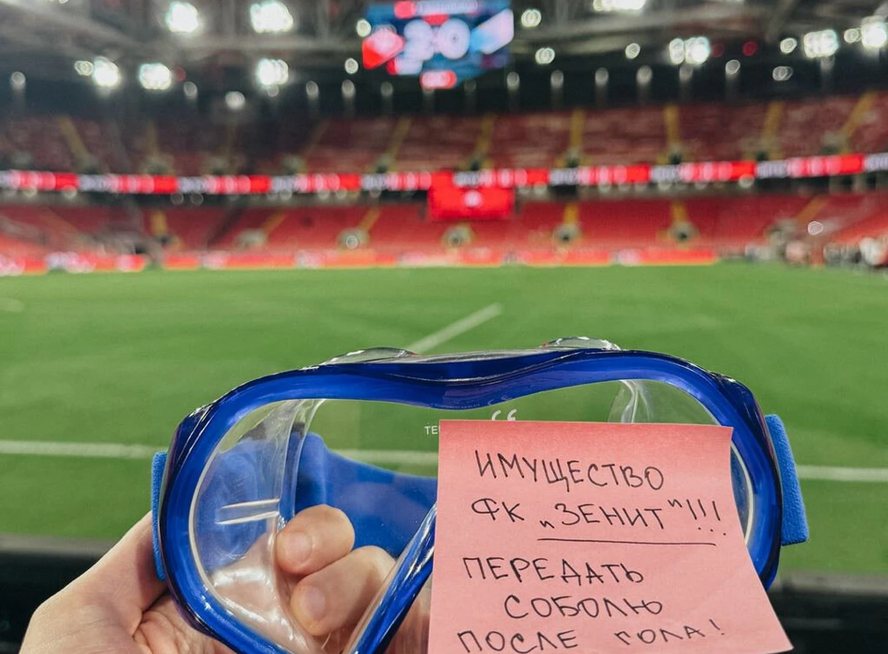 2:0
ТЕ
ИМУЩЕСТВО
ФК „ЗЕНИТ"!!!
ПЕРЕДАТЬ
СОБОЛЮ
ПОСЛЕ ГОЛА!